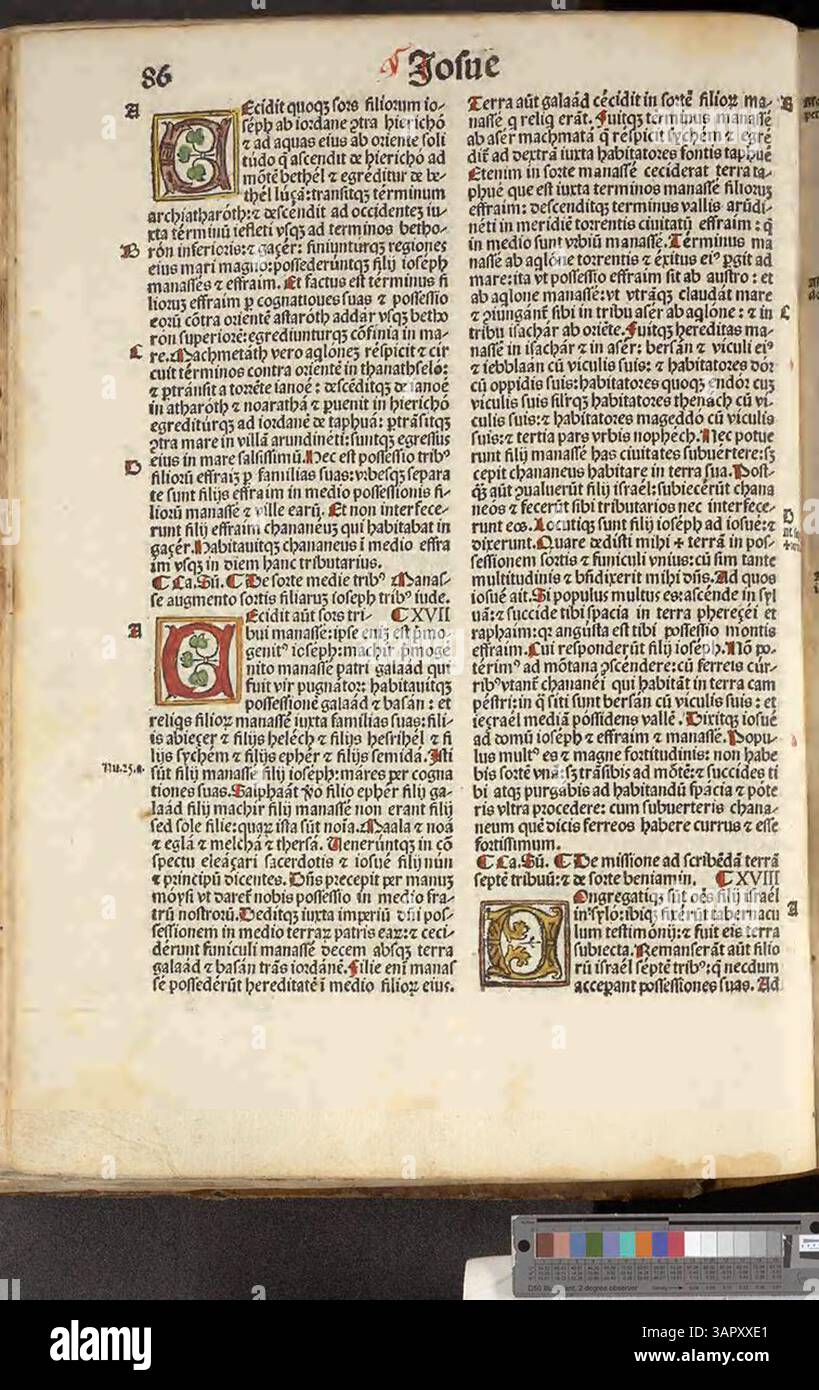 86
Josue
A
Ecidit quoqꝫ sors filiorum io-
séph ab iordane ꝯtra hierichó
⁊ ad aquas eius ab oriente soli
túdo q̄ ascendit de hierichó ad
mōtē bethél ⁊ egréditur de be-
thél lúçā:transitqꝫ términum
archiatharóth:⁊ descendit ad occidenteꝫ iu-
xta términū iefleti vsqꝫ ad terminos betho-
B
rón inferioris:⁊ gaçér: finiunturqꝫ regiones
eius mari magno:possederúntqꝫ filij ioséph
manassēs ⁊ effraim. Et factus est términus fi
lioruꝫ effraim ꝑ cognationes suas ⁊ possessio
eorū cōtra orientē astaróth addár vsqꝫ betho
rón superiorē:egrediunturqꝫ cōfinia in ma-
C
re. Machmetáth vero aqlóneꝫ réspicit ⁊ cir
cuit términos contra orientē in thanathseló:
⁊ ꝑtránsit a torrēte ianoé: descēditqꝫ de ianoé
in atharóth ⁊ noarathá ⁊ ꝑuenit in hierichó
egrediturqꝫ ad iordanē de taphuá: ꝑtrásitqꝫ
ꝯtra mare in villā arundinéti:suntqꝫ egressus
D
eius in mare salsissimū. Hec est possessio tribꝰ
filiorū effraiꝫ ꝑ familias suas: vrbesqꝫ separa
te sunt filijs effraim in medio possessionis fi-
liorū manassē ⁊ ville earū. Et non interfece-
runt filij effraim chananéuꝫ qui habitabat in
gaçér. Habitauitqꝫ chananeus ī medio effra
im vsqꝫ in diem hanc tributarius.
Ca. Sū. De sorte medie tribꝰ Manas-
se augmento sortis filiarum ioseph tribꝰ iude.
XVII
A
Ecidit aūt sors tri-
bui manassē:ipse eniꝫ est p̄mo-
genitꝰ ioséph:machir p̄moge
nito manassē patri galaád qui
fuit vir pugnátor: habitauitqꝫ
possessionē galaád ⁊ basán : et
reliqs filioꝝ manassē iuxta familias suas:fili-
is abieçer ⁊ filijs heléch ⁊ filijs hesrihél ⁊ fi
lijs sychém ⁊ filijs ephér ⁊ filijs semidá. Isti
Nu.25.
sūt filij manassē filij ioséph: máres per cogna
tiones suas. Salphaát vo filio ephér filij ga-
laád filij machir filij manassē non erant filij
sed sole filie:quaꝝ ista sūt noīa. Maala ⁊ noá
⁊ eglá ⁊ melchá ⁊ thersá. Ueneruntqꝫ in cō
spectu eleaçari sacerdotis ⁊ iosué filij nún
⁊ principū dicentes. Dn̄s precepit per manuꝫ
móysi vt daret nobis possessio in medio fra-
trū nostrorū. Deditqꝫ iuxta imperiū dn̄i pos-
sessionem in medio terraꝝ patris eaꝝ:⁊ ceci-
dérunt funiculi manassē decem absqꝫ terra
galaád ⁊ basán trās iordanē. Filie enī manas
sē possedérūt hereditatē ī medio filioꝝ eius.
Terra aūt galaád cécidit in sortē filioꝝ ma-
B
nassē q̄ reliq̄ erāt. Fuitqꝫ terminus manassē
ab asér machmatá q̄ réspicit sychém ⁊ egré
dit̄ ad dextrā iuxta habitatores fontis taphuē
Etenim in sorte manassē ceciderat terra ta-
phué que est iuxta terminos manassē filioruꝫ
effraim: descenditqꝫ terminus vallis arūdi-
néti in meridiē torrentis ciuitatū effraim : q̄
in medio sunt vrbiū manassē. Términus ma
nassē ab aqlōne torrentis ⁊ éxitus eiꝰ ꝑgit ad
mare:ita vt possessio effraim sit ab austro : et
ab aqlone manassē:vt vtrāqꝫ claudat mare
⁊ ꝯiungant̄ sibi in tribu asér ab aqlōne : ⁊ in
C
tribu isachár ab oriēte. Fuitqꝫ hereditas ma-
nassē in isachár ⁊ in asér: bersán ⁊ viculi eiꝰ
⁊ ieblaán cū viculis suis: ⁊ habitatores dór
cū oppidis suis:habitatores quoqꝫ endór cuꝫ
viculis suis sil'rqꝫ habitatores thenách cū vi-
culis suis:⁊ habitatores mageddó cū viculis
suis:⁊ tertia pars vrbis nophéch. Nec potue
runt filij manassē has ciuitates subuertere:sꝫ
cepit chananeus habitare in terra sua. Post-
q̄ꝫ aūt ꝯualuerūt filij israél:subiecérūt chana
néos ⁊ fecérūt sibi tributarios nec interfece-
D
runt eos. Locutiqꝫ sunt filij ioséph ad iosué:⁊
dixerunt. Quare dedisti mihi + terrā in pos-
sessionem sortis ⁊ funiculi vnius:cū sim tante
multitudinis ⁊ bn̄dixerit mihi dūs. Ad quos
iosué ait. Si populus multus es:ascénde in syl
uā:⁊ succide tibi spacia in terra phereçéi et
raphaim:qꝛ angústa est tibi possessio montis
effraim. Cui respondérūt filij ioséph. Nō po-
térimꝰ ad mōtana ꝯscéndere:cū ferreis cúr-
ribꝰ vtant̄ chananéi qui habitāt in terra cam
péstri:in q̄ siti sunt bersán cū viculis suis : et
ieçraél mediā póssidens vallē . Dixitqꝫ iosué
ad domū ioséph ⁊ effraim ⁊ manassē. Popu-
lus multꝰ es ⁊ magne fortitudinis: non habe
bis sortē vnā:sꝫ trāsibis ad mōtē:⁊ succides ti
bi atqꝫ purgabis ad habitandū spácia ⁊ póte
ris vltra procedere: cum subuerteris chana-
neum quē dicis ferreos habere currus ⁊ esse
fortissimum.
Ca. Sū. De missione ad scribēdā terrā
septē tribuū:⁊ de sorte beniamin. XVIII
A
Ongregatiqꝫ sūt oēs filij israél
in syló:ibiqꝫ fixérūt tabernacu
lum testimónij:⁊ fuit eis terra
subiecta. Remanserāt aūt filio
rū israél séptē tribꝰ:q̄ necdum
acceperant possessiones suas. Ad
alamy
Image ID: 3APXXE1
www.alamy.com